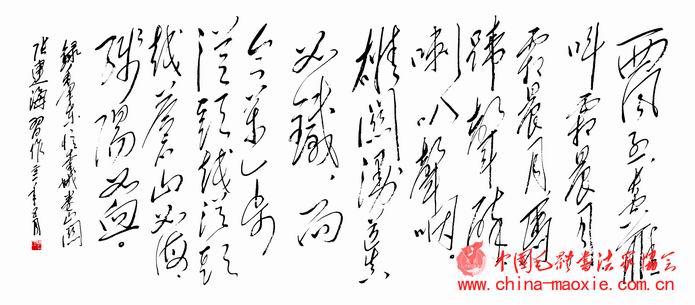 西风烈长空雁
叫霜晨月
霜晨月馬
蹄聲碎
喇叭聲咽。
雄関漫道真
如鐵，而
今迈步
從頭越從頭
越蒼山如海，
残陽如血。
錄毛澤東憶秦娥婁山関
张建海習作
中国毛體書法家協會
www.china-maoxie.com.cn